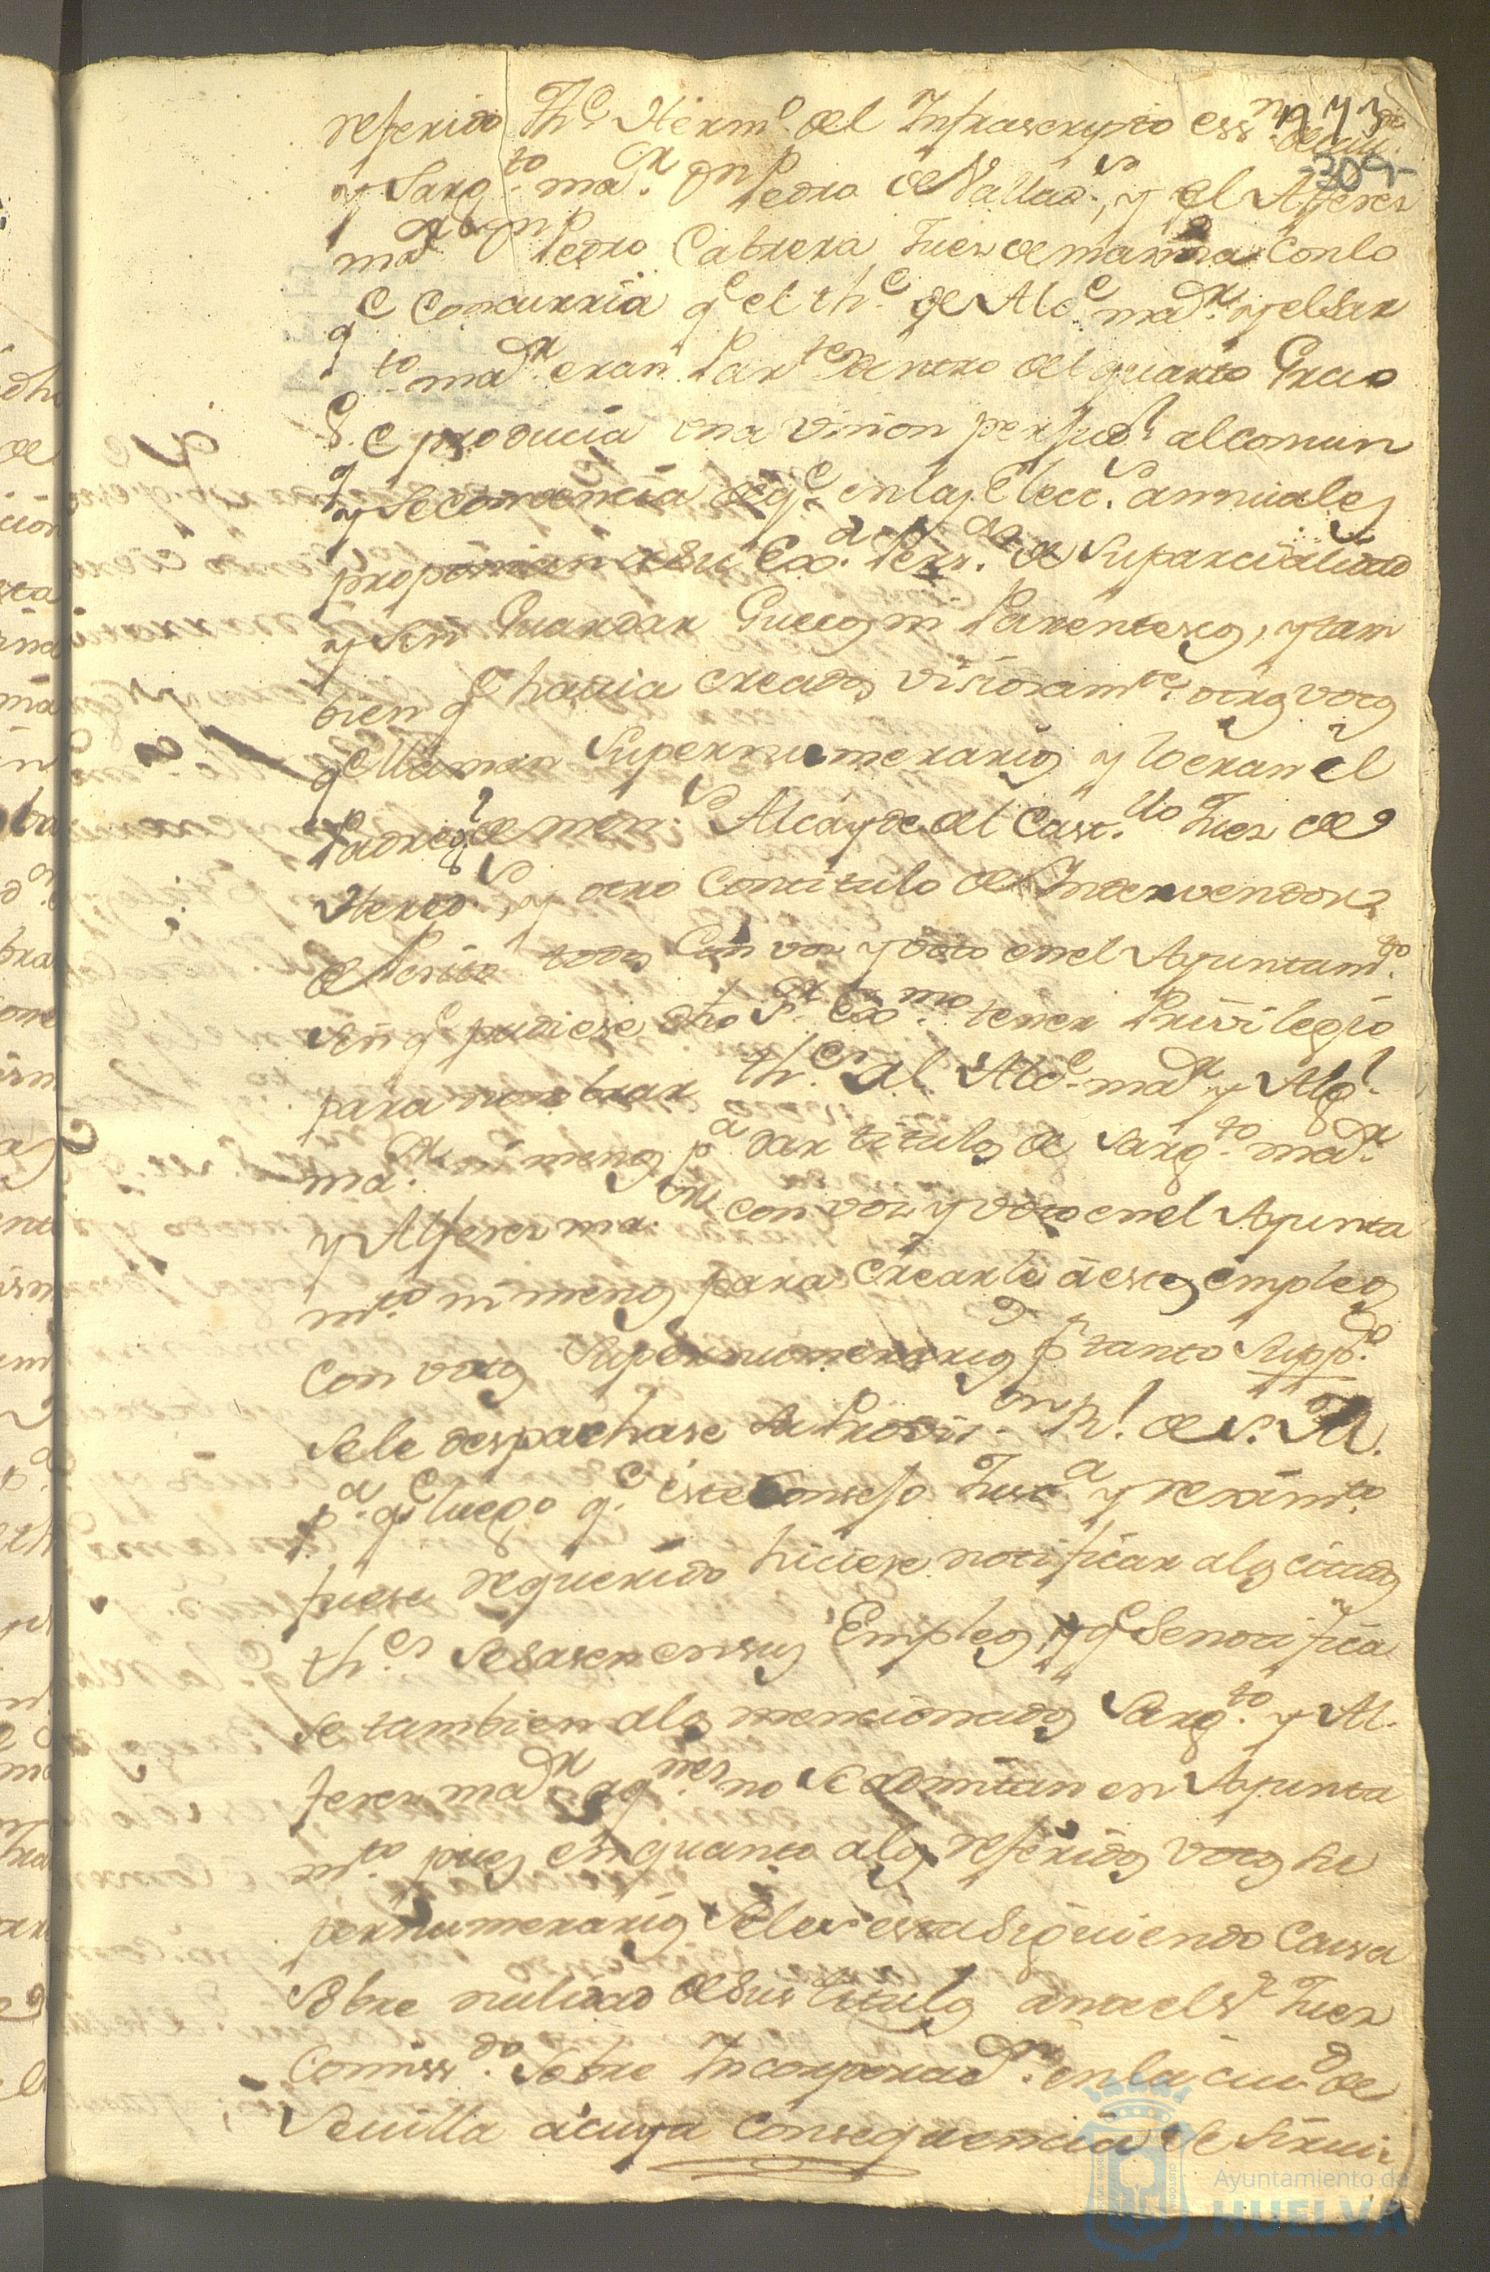 referido Th.e Herm.o del Infrascrypto ess.no
309
y Sarg.to ma.r Dn Pedro de Vallad.s, y el Alferes
ma.r Dn Pedro Cabrera Juez de marina Con lo
q.e Concurria q.e el th.e de Alc.e ma.r y el Sar
g.to ma.r eran Par.tes dentro del quarto Grado
q.e producia una Union perjud.l al comun
y Se conocia de q.e en las Elecc.s annuales
proponian a Su Exc.a Pers.as de Su parcialidad
y Sin Guardar Guecos ni Parentescos, y tam
bien q.e havia creados visiosam.te otros votos
q.e llaman Supernumerarios y lo eran el
Padre de men.s Alcayde del Cast.llo Juez de
Hered.s, y otro Con titulo de Interventor
de Posito todos Con voz y voto en el Ayuntam.to
Sin q.e pudiese dho S.r Exc.mo tener Privilegio
para nombrar th.es al Alc.e ma.r y Alg.l
ma.r ni menos p.a dar titulos de Sarg.to ma.r
y Alferes ma.r con voz y voto en el Ayunta
m.to ni menos para crearle a estos empleos
con votos Supernumerarios p.r tanto Supp.do
Se le despachase la Provis.on R.l de S. M.
p.a q.e luego q.e este Consejo Just.a y reximi.to
fuese requerido hiciese notificar a los citados
th.es Sesasen en sus Empleos y q.e Se notifica
se tambien a los mencionados Sarg.to y Al
feres ma.r a q.nes no Se admitan en Ayunta
m.to pues en quanto a los referidos votos Su
pernumerarios Se les esta Siguiendo Causa
Sobre nulidad de Sus titulos ante el S.r Juez
Comiss.do Sobre Incorporac.on en la ciu.d de
Sevilla a cuya Consequencia Se Sirvi
Ayuntamiento de
HUELVA